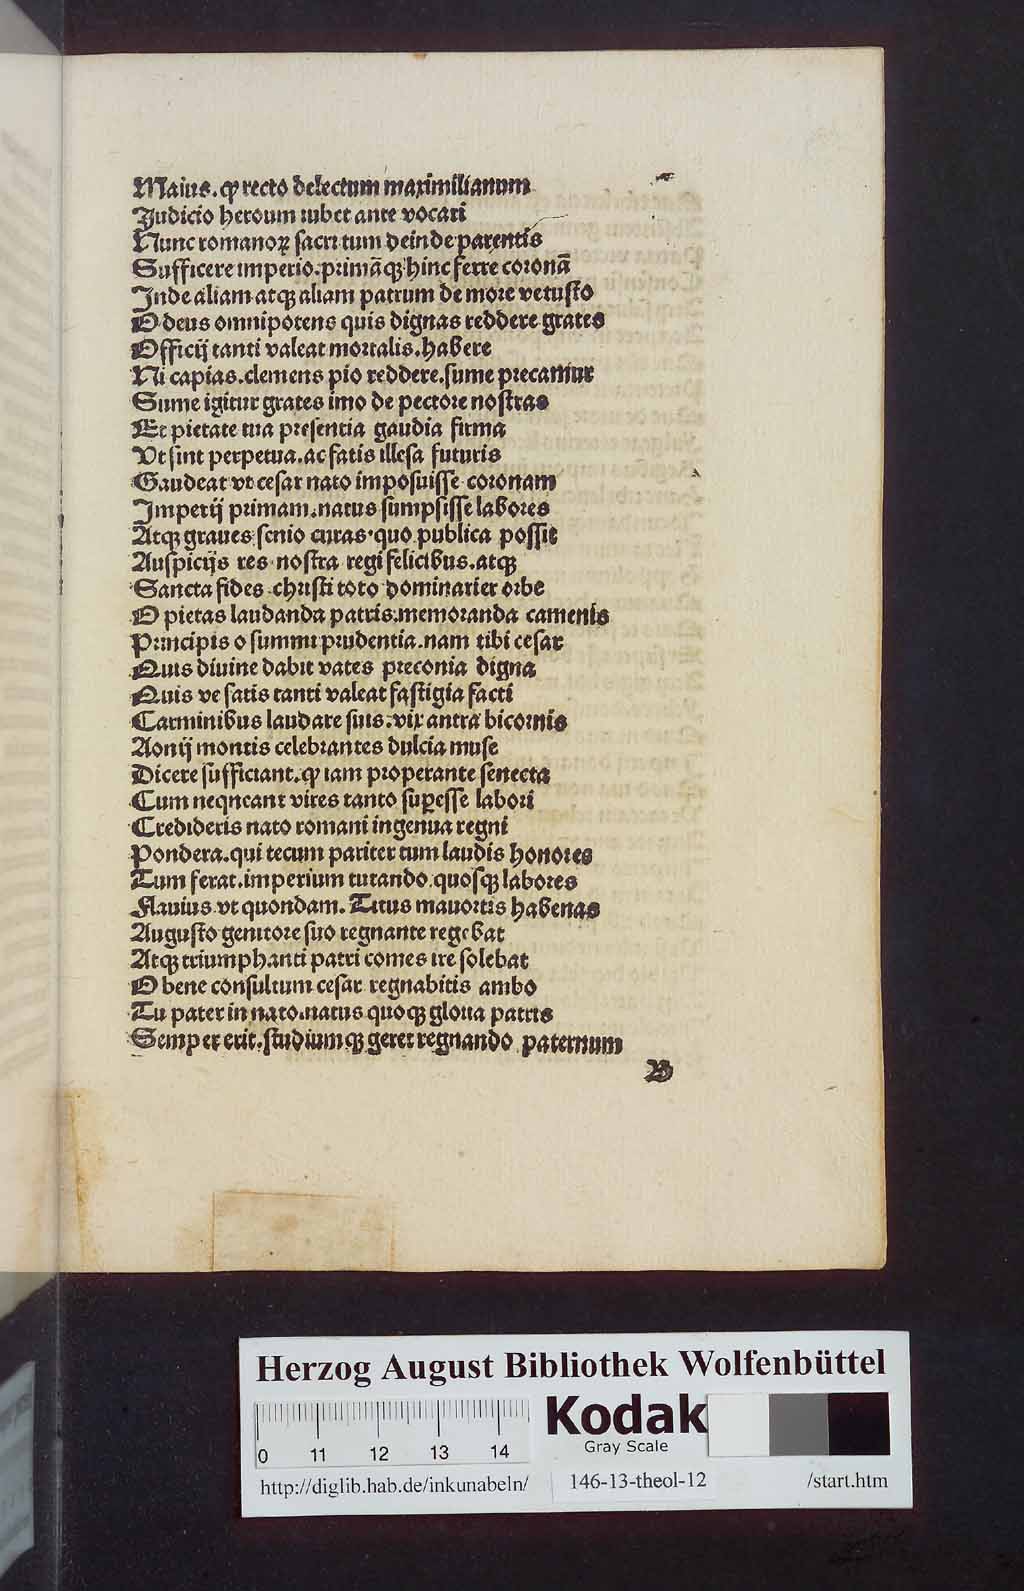 Maius. ꝙ recto delectum maximilianum
Judicio heroum iubet ante vocari
Nunc romanoꝝ sacri tum deinde parentis
Sufficere imperio. primā qꝫ hinc ferre coronā
Inde aliam atqꝫ aliam patrum de more vetusto
O deus omnipotens quis dignas reddere grates
Officij tanti valeat mortalis. habere
Ni capias. clemens pio reddere. sume precamur
Sume igitur grates imo de pectore nostras
Et pietate tua presentia gaudia firma
Vt sint perpetua. ac fatis illesa futuris
Gaudeat vt cesar nato imposuisse coronam
Imperij primam. natus sumpsisse labores
Atqꝫ graues senio curas. quo publica possit
Auspicijs res nostra regi felicibus. atqꝫ
Sancta fides christi toto dominarier orbe
O pietas laudanda patris. memoranda camenis
Principis o summi prudentia. nam tibi cesar
Quis diuine dabit vates preconia digna
Quis ve satis tanti valeat fastigia facti
Carminibus laudare suis. vix antra bicornis
Aonij montis celebrantes dulcia muse
Dicere sufficiant. ꝙ iam properante senecta
Cum neqneant vires tanto suꝑesse labori
Credideris nato romani ingenua regni
Pondera. qui tecum pariter tum laudis honores
Tum ferat. imperium tutando quosqꝫ labores
Flauius vt quondam. Titus mauortis habenas
Augusto genitore suo regnante regebat
Atqꝫ triumphanti patri comes ire solebat
O bene consultum cesar regnabitis ambo
Tu pater in nato. natus quoqꝫ gloria patris
Semper erit. studiumqꝫ geret regnando paternum
B
Herzog August Bibliothek Wolfenbüttel
0 11 12 13 14
Kodak
Gray Scale
http://diglib.hab.de/inkunabeln/ 146-13-theol-12 /start.htm